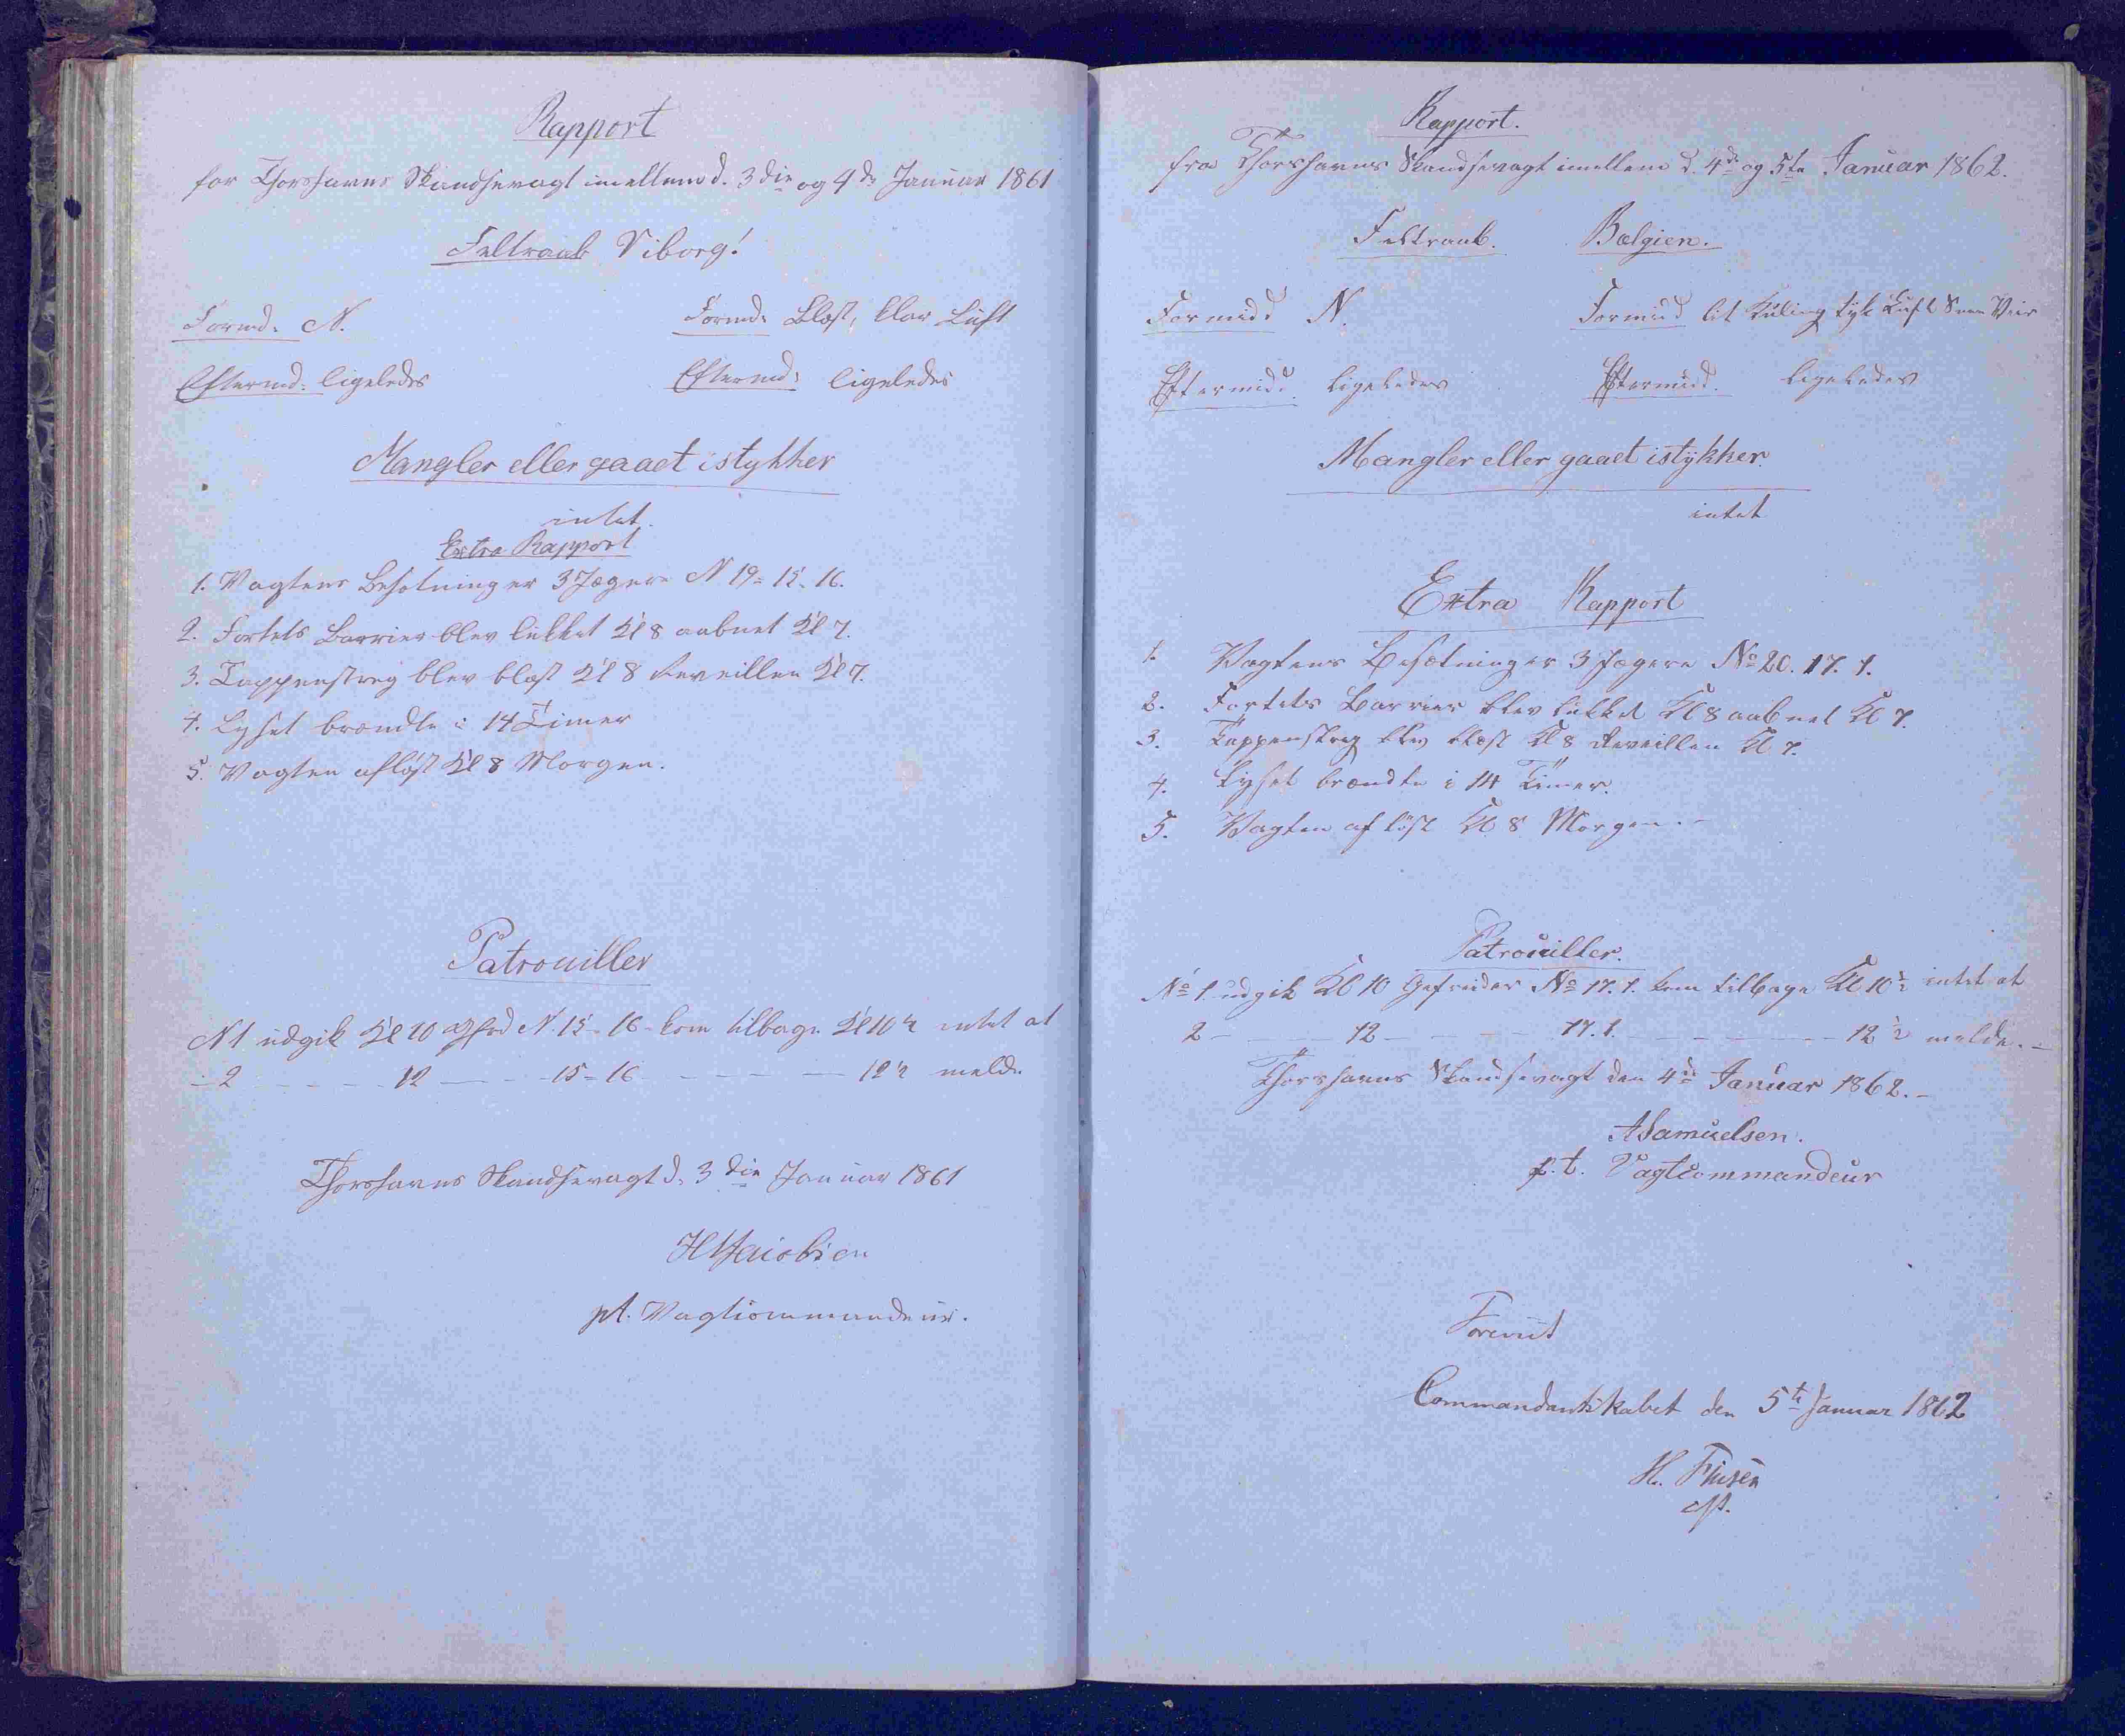 Rapport
for Thorshavns Skandsevagt imellem d. 3die og 4de Januar 1861
Feltraab Viborg!
Formd: N.
Formd: Blæst, klar Luft
Eftermd: ligeledes
Eftermd: ligeledes
Mangler eller gaaet istykker
intet.
Extra Rapport
1. Vagtens Besætning er 3 Jægere N 19 = 15 - 16.
2. Fortets Barrier blev lukket Kl 8 aabnet Kl 7.
3. Tappenstreg blev blæst Kl 8 Reveillen Kl 7.
4. Lyset brændte i 14 Timer
5. Vagten afløst Kl 8 Morgen.
Patrouiller
N 1 udgik Kl 10 N. 15 - 16 - kom tilbage Kl 10½ intet at
- 2 - - - - 12 - - - 15 - 16 - - - - - 12½ melde
Thorshavns Skandsevagt d. 3die Januar 1861
H Jacobsen
pt. Vagtcommandeur.
Rapport.
fra Thorshavns Skandsevagt imellem d. 4de og 5te Januar 1862.
Feltraab. Belgien.
Formidd N.
Formidd lit Kuling tyk Luft Snee
Eftermidd. ligeledes
Eftermidd. ligeledes
Mangler eller gaaet istykker.
intet
Extra Rapport
1. Vagtens Besætning er 3 Jægere No 20. 17. 1.
2. Fortets Barrier blev lukket Kl 8 aabnet Kl 7.
3. Tappenstreg blev blæst Kl 8 Reveillen Kl 7.
4. Lyset brændte i 14 Timer.
5. Vagten afløst Kl. 8 Morgen. -
Patrouiller.
No 1. udgik Kl 10 Gefreider No 17. 1. kom tilbage Kl 10½ intet at
2 - - - 12 - - - - 17. 1. - - - - - 12½ melde. -
Thorshavns Skandsevagt den 4de Januar 1862. -
A Samuelsen.
p. t. Vagtcommandeur
Foreviist
Commandantskabet den 5te Januar 1862
H.